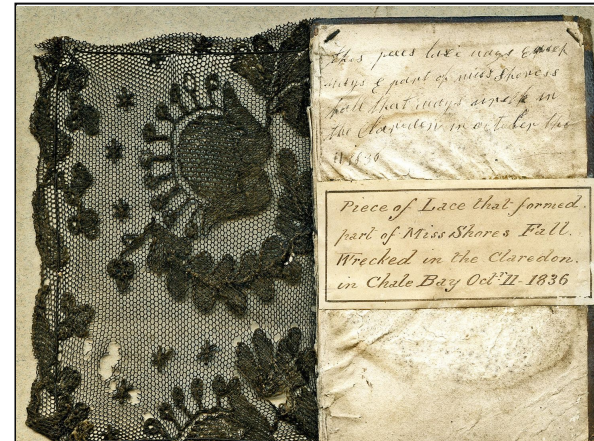 this pees lace
part of miss Shoress
fall that
the Claredon in october the
11 1836
Piece of Lace that formed.
part of Miss Shores Fall.
Wrecked in the Claredon.
in Chale Bay Octr 11-1836